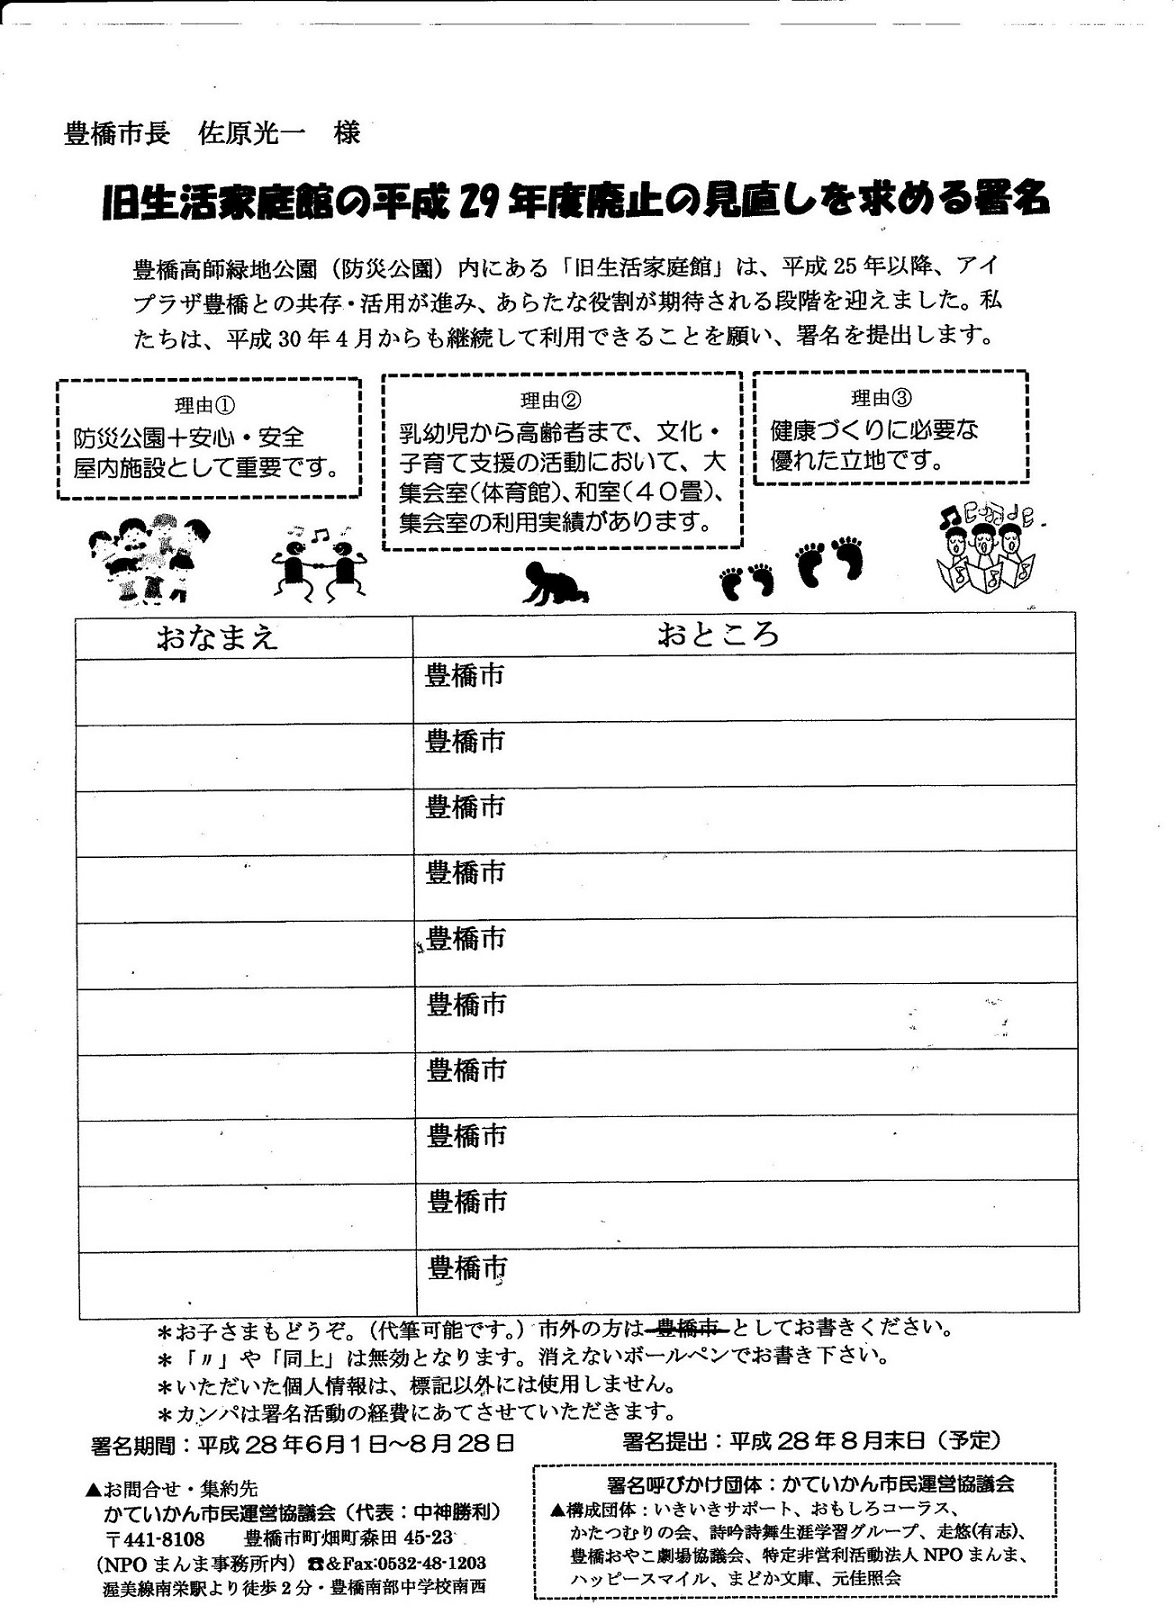 豊橋市長　佐原光一　様
旧生活家庭館の平成29年度廃止の見直しを求める署名
豊橋高師緑地公園（防災公園）内にある「旧生活家庭館」は、平成25年以降、アイ
プラザ豊橋との共存・活用が進み、あらたな役割が期待される段階を迎えました。私
たちは、平成30年4月からも継続して利用できることを願い、署名を提出します。
理由①
防災公園＋安心・安全
屋内施設として重要です。
理由②
乳幼児から高齢者まで、文化・
子育て支援の活動において、大
集会室（体育館）、和室（４０畳）、
集会室の利用実績があります。
理由③
健康づくりに必要な
優れた立地です。
おなまえ　おところ
豊橋市
豊橋市
豊橋市
豊橋市
豊橋市
豊橋市
豊橋市
豊橋市
豊橋市
豊橋市
＊お子さまもどうぞ。（代筆可能です。）市外の方は 豊橋市 としてお書きください。
＊「〃」や「同上」は無効となります。消えないボールペンでお書き下さい。
＊いただいた個人情報は、標記以外には使用しません。
＊カンパは署名活動の経費にあてさせていただきます。
署名期間：平成28年6月1日～8月28日　署名提出：平成28年8月末日（予定）
▲お問合せ・集約先
かていかん市民運営協議会（代表：中神勝利）
〒441-8108　豊橋市町畑町森田45-23
（NPOまんま事務所内）☎＆Fax:0532-48-1203
渥美線南栄駅より徒歩2分・豊橋南部中学校南西
署名呼びかけ団体：かていかん市民運営協議会
▲構成団体：いきいきサポート、おもしろコーラス、
かたつむりの会、詩吟詩舞生涯学習グループ、走悠(有志)、
豊橋おやこ劇場協議会、特定非営利活動法人NPOまんま、
ハッピースマイル、まどか文庫、元佳照会